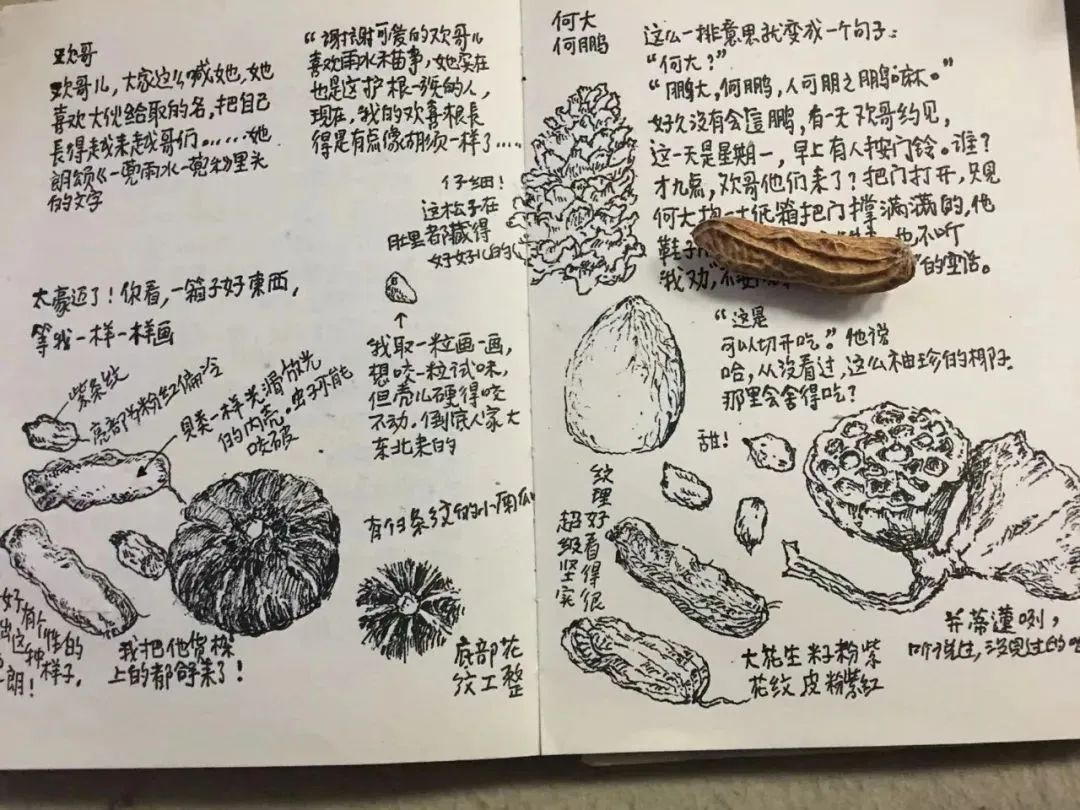 欢哥
欢哥儿，大家这么喊她，她
喜欢大伙给取的名，把自己
長得越来越哥们。……她
朗颂《一蔸雨水一蔸禾》里头
的文字
“谢谢可爱的欢哥儿
喜欢雨水禾苗事，她实在
也是这护根一族的人，
现在，我的欢喜根長
得是有点像胡须一样了…
仔细！
这松子在
肚里都藏得
好好儿的
太豪迈了！你看，一箱子好東西，
等我一样一样画
我取一粒画一画，
想咬一粒试味，
但壳儿硬得咬
不动。倒底人家大
东北来的
紫条纹
亮部为粉红偏冷
貝类一样光滑放光
的内壳。虫子不能
咬破
有白条纹的小南瓜
底部花
纹工整
好有个性的
这种样子，
朗！
我把他货柜
上的都舒来了！
何大
何鹏
这么一排意思就变成一个句子：
“何大？”
“鹏大，何鹏，人可朋之鹏嘛。”
好久没有会這鹏，有一天欢哥约见，
这一天是星期一，早上有人按门铃。谁？
才九点，欢哥他们来了？把门打开，只见
何大抱一大纸箱把门撑满满的，他
鞋子
也不听
我劝，不
的电话。
“这是
可以切开吃。”他说
哈，从没看过，这么袖珍的椰子
那里会舍得吃？
甜！
纹理好看得很
超级坚实
大花生 籽粉紫
花纹 皮粉紫红
并蒂蓮咧，
听说过，没見过的吧